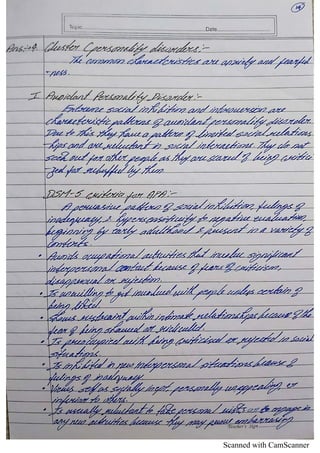 19
Topic
Date
Ans:-9. Cluster C personality disorders:-
The common characteristics are anxiety and fearful
-ness.
I Avoidant Personality Disorder:-
Extreme social inhibition and introversion are
characteristic patterns of avoidant personality disorder.
Due to this they have a pattern of limited social relations
hips and are reluctant in social interactions. They do not
seek out for other people as they are scared of being critici
zed or rebuffed by them.
DSM-5 criteria for APD:-
A pervasive pattern of social inhibition, feelings of
inadequacy, & hypersensitivity to negative evaluation,
beginning by early adulthood & present in a variety of
contexts.
• Avoids occupational activities that involve significant
interpersonal contact because of fears of criticism,
disapproval or rejection.
• Is unwilling to get involved with people unless certain of
being liked.
• Shows restraint within intimate relationships because of the
fear of being shamed or ridiculed.
• Is preoccupied with being criticised or rejected in social
situations.
• Is inhibited in new interpersonal situations because of
feelings of inadequacy.
• Views self as socially inept, personally unappealing or
inferior to others.
• Is usually reluctant to take personal risks or to engage in
any new activities because they may prove embarrassing
Scanned with CamScanner